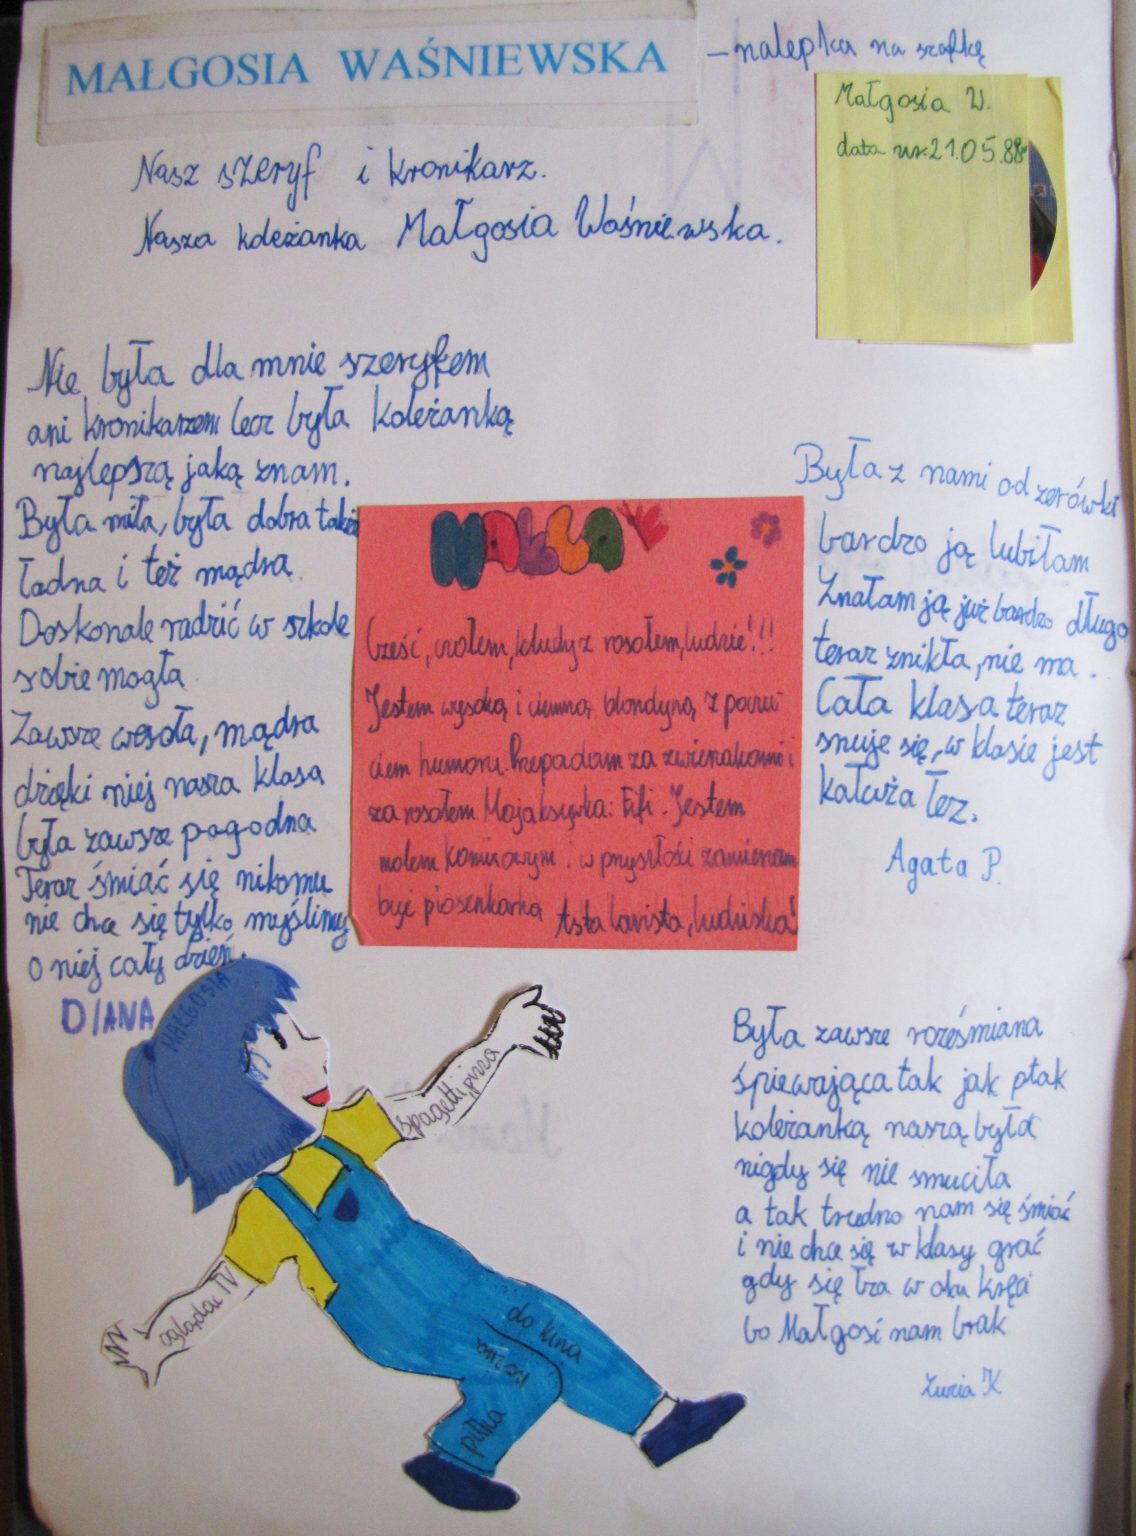 MAŁGOSIA WAŚNIEWSKA
– nalepka na szafkę
Małgosia W.
data ur. 21.05.88r
Nasz szeryf i kronikarz.
Nasza koleżanka Małgosia Waśniewska.
Nie była dla mnie szeryfem
ani kronikarzem lecz była koleżanką
najlepszą jaką znam.
Była miła, była dobra także
ładna i też mądra
Doskonale radzić w szkole
sobie mogła
Zawsze wesoła, mądra
dzięki niej nasza klasa
była zawsze pogodna
Teraz śmiać się nikomu
nie chce się tylko myślimy
o niej cały dzień.
DIANA
MAŁGA
Cześć, czołem, kludy z rosołem, ludzie!!!
Jestem wysoką i ciemną blondyną z poczu-
ciem humoru. Przepadam za zwierzakami i
za rosołem Moja ksywka: Fifi. Jestem
molem komiksowym i w przyszłości zamierzam
być piosenkarką Asta lavista, ludziska!
Była z nami od zerówki
bardzo ją lubiłam
Znałam ją już bardzo długo
teraz znikła, nie ma.
Cała klasa teraz
snuje się, w klasie jest
kałuża łez.
Agata P.
Była zawsze roześmiana
śpiewająca tak jak ptak
koleżanką naszą była
nigdy się nie smuciła
a tak trudno nam się śmiać
i nie chce się w klasy grać
gdy się łza w oku kręci
bo Małgosi nam brak
Zuzia K
MAŁGOSIA
spagetti, pizza
oglądać TV
do kina
nożna
piłka